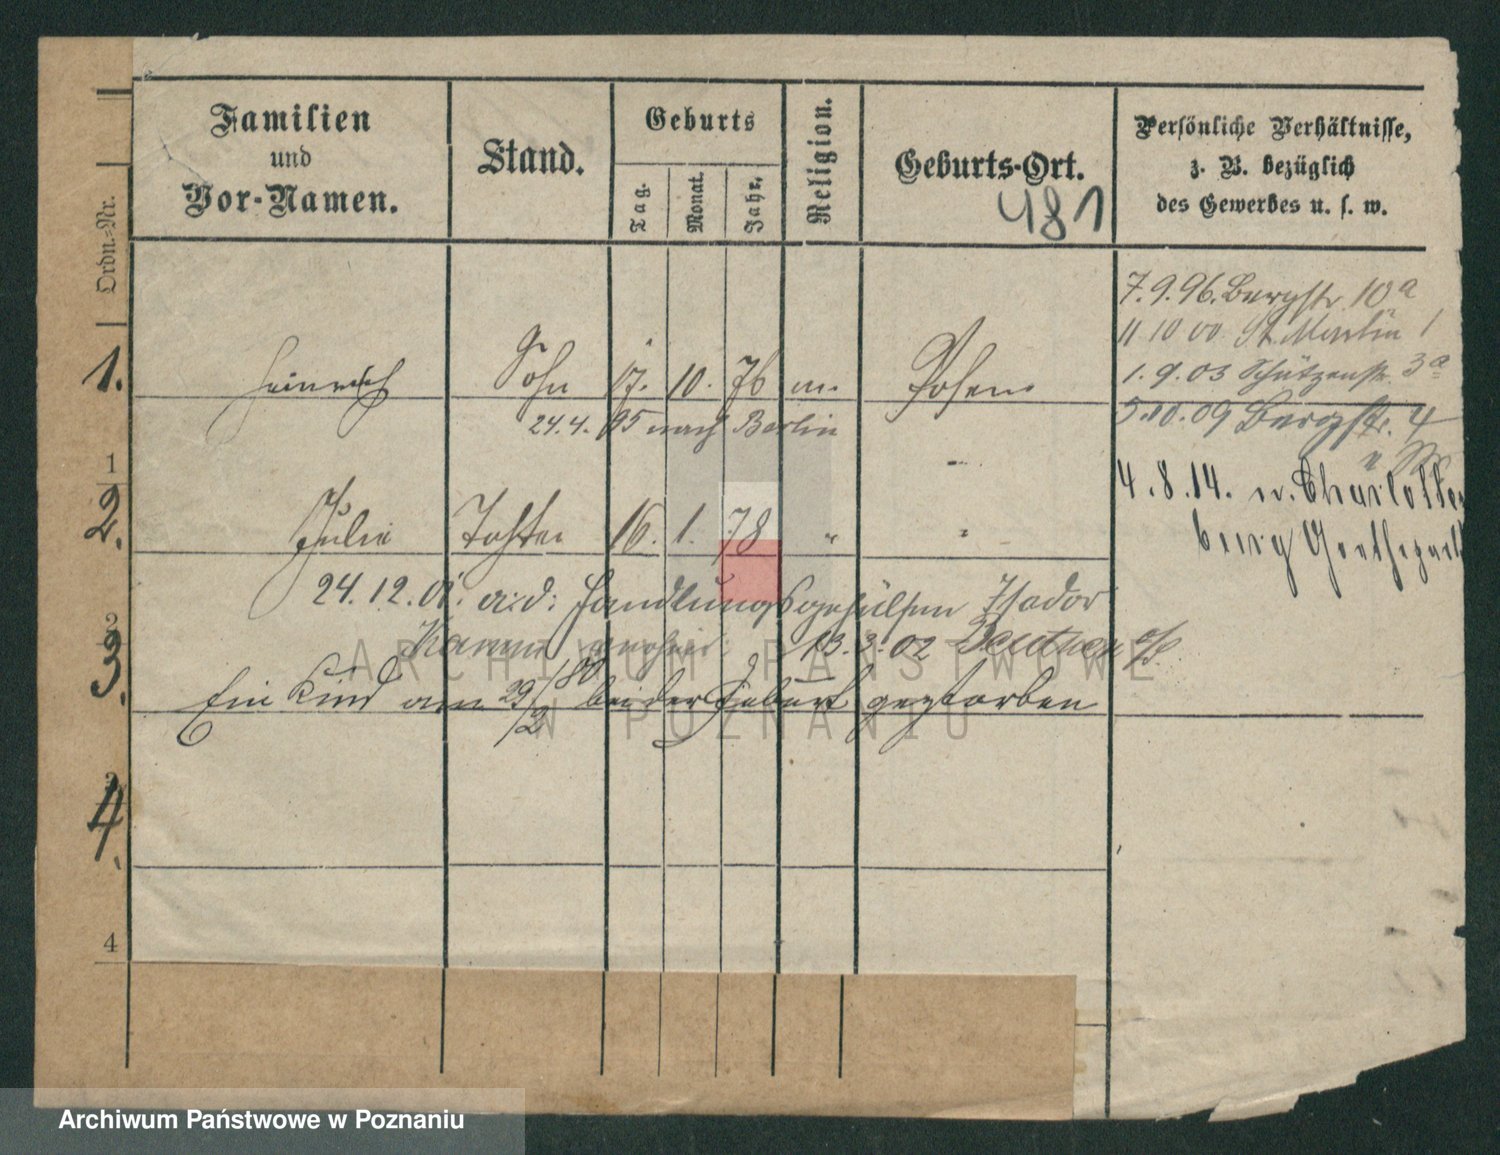 Ordn.-Nr.
Familien
und
Vor-Namen.
Stand.
Geburts
Tag.
Monat.
Jahr.
Religion.
Geburts-Ort.
481
Persönliche Verhältnisse,
z. B. bezüglich
des Gewerbes u. s. w.
7.9.96. Bergstr. 10a
11 10 00 St. Martin 1
1. Heinrich Sohn 17. 10. 76 m. Posen
1.9.03 Schützenstr. 3a
24.4.95 nach Berlin
5.10.09 Bergstr. 4
1
4.8.14. n. Charlotten
burg Goethepark
2. Julie Tochter 16. 1. 78 " "
24.12.01. a. d. Handlungsgehülfen Isador
2
verheir. 13.3.02 Beuthen o/S.
3. Ein Kind am 29/2 80 bei der Geburt gestorben
3
4.
4
ARCHIWUM PAŃSTWOWE
W POZNANIU
Archiwum Państwowe w Poznaniu